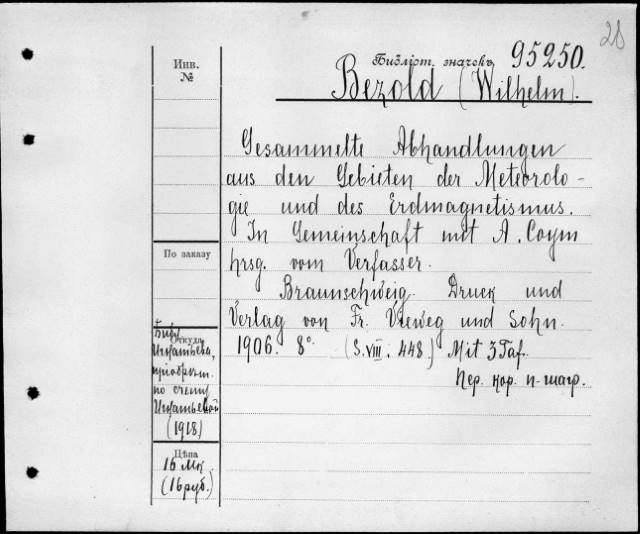 28
Инв.
№
Библіот. значекъ 95250.
Bezold (Wilhelm).
Gesammelte Abhandlungen
aus den Gebieten der Meteorolo-
gie und des Erdmagnetismus.
In Gemeinschaft mit A. Coym
hrsg. vom Verfasser.
Braunschweig. Druck und
Verlag von Fr. Vieweg und Sohn.
1906. 8° (S. VIII. 448.) Mit 3 Taf.
Пер. кор. п-шагр.
По заказу
Откуда
Библ.
Игнатьева,
пріобрѣт.
по счету
Игнатьевой
(1918)
Цѣна
16 Мк.
(16 руб.)